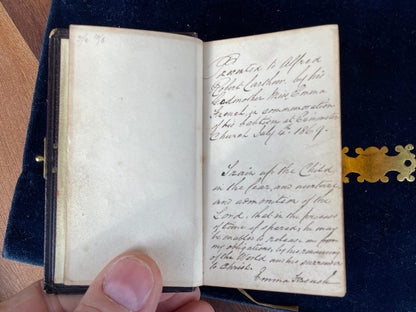 Presented to Alfred
by his
Godmother Miss Emma
French in commemoration
of his baptism at
Church July 6th 1869.
Train up the Child
in the fear and nurture
and admonition of the
Lord. that in the process
of time if spared, he may
be enabled to release me from
my obligations, by his renouncing
of the World and his surrender
to Christ.
Emma French